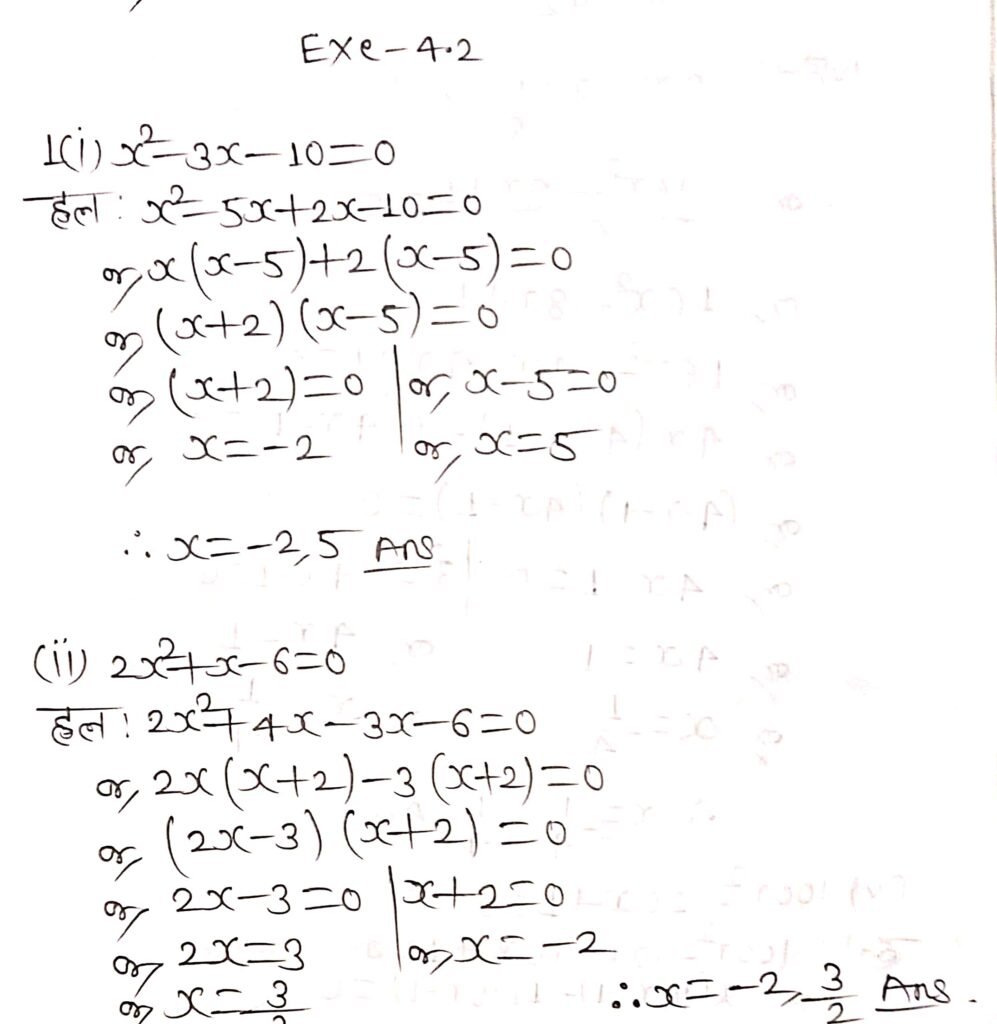 Exe-4.2
1(i) x²-3x-10=0
हल: x²-5x+2x-10=0
or, x(x-5)+2(x-5)=0
or, (x+2)(x-5)=0
or, (x+2)=0 | or, x-5=0
or, x=-2 | or, x=5
∴ x=-2,5 Ans
(ii) 2x²+x-6=0
हल: 2x²+4x-3x-6=0
or, 2x(x+2)-3(x+2)=0
or, (2x-3)(x+2)=0
or, 2x-3=0 | x+2=0
or, 2x=3 | or, x=-2
or, x=3/2 ∴ x=-2, 3/2 Ans.